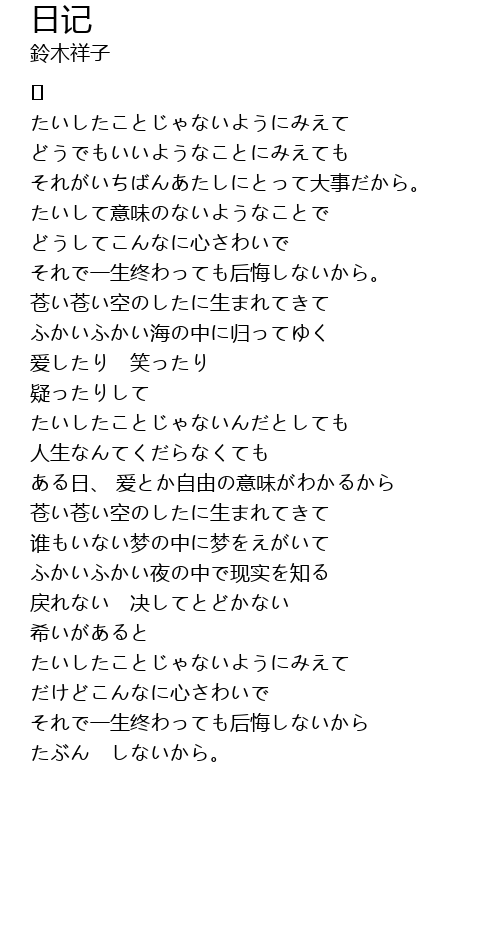 日记
鈴木祥子
たいしたことじゃないようにみえて
どうでもいいようなことにみえても
それがいちばんあたしにとって大事だから。
たいして意味のないようなことで
どうしてこんなに心さわいで
それで一生终わっても后悔しないから。
苍い苍い空のしたに生まれてきて
ふかいふかい海の中に归ってゆく
爱したり　笑ったり
疑ったりして
たいしたことじゃないんだとしても
人生なんてくだらなくても
ある日、 爱とか自由の意味がわかるから
苍い苍い空のしたに生まれてきて
谁もいない梦の中に梦をえがいて
ふかいふかい夜の中で现实を知る
戻れない　决してとどかない
希いがあると
たいしたことじゃないようにみえて
だけどこんなに心さわいで
それで一生终わっても后悔しないから
たぶん　しないから。